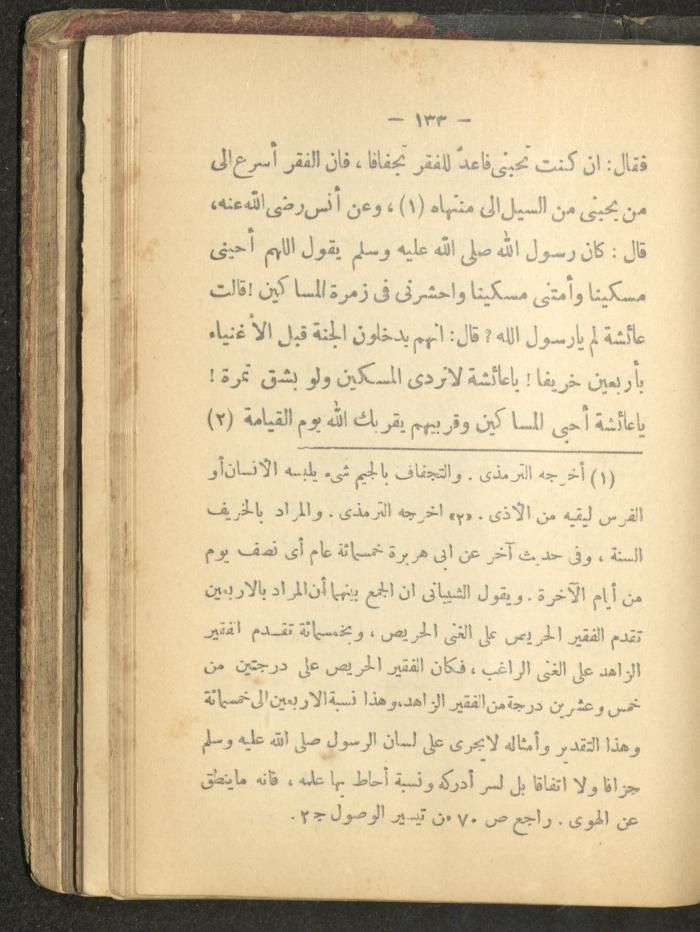 — ١٣٣ —
فقال: ان كنت تحبنى فاعدّ للفقر تجفافا ، فان الفقر أسرع الى
من يحبنى من السيل الى منتهاه (١) ، وعن أنس رضى الله عنه،
قال : كان رسول الله صلى الله عليه وسلم يقول اللهم أحينى
مسكينا وأمتنى مسكينا واحشرنى فى زمرة المساكين ! قالت
عائشة لم يارسول الله ? قال: انهم يدخلون الجنة قبل الأغنياء
بأربعين خريفا ! ياعائشة لاتردى المسكين ولو بشق تمرة !
ياعائشة أحبى المساكين وقربيهم يقربك الله يوم القيامة (٢)
(١) أخرجه الترمذى . والتجفاف بالجيم شىء يلبسه الانسان أو
الفرس ليقيه من الأذى . «٢» اخرجه الترمذى . والمراد بالخريف
السنة ، وفى حديث آخر عن ابى هريرة خمسمائة عام أى نصف يوم
من أيام الآخرة . ويقول الشيبانى ان الجمع بينهما أن المراد بالاربعين
تقدم الفقير الحريص على الغنى الحريص ، وبخمسمائة تقدم الفقير
الزاهد على الغنى الراغب ، فكان الفقير الحريص على درجتين من
خمس وعشرين درجة من الفقير الزاهد، وهذا نسبة الاربعين الى خمسمائة
وهذا التقدير وأمثاله لايجرى على لسان الرسول صلى الله عليه وسلم
جزافا ولا اتفاقا بل لسر أدركه ونسبة أحاط بها علمه ، فانه ماينطق
عن الهوى . راجع ص ٧٠ من تيسير الوصول ج ٢ .